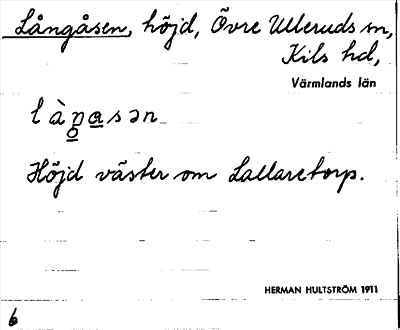 Långåsen, höjd, Övre Ulleruds sn,
Kils hd,
Värmlands län
Höjd väster om Lallaretorp.
HERMAN HULTSTRÖM 1911
6